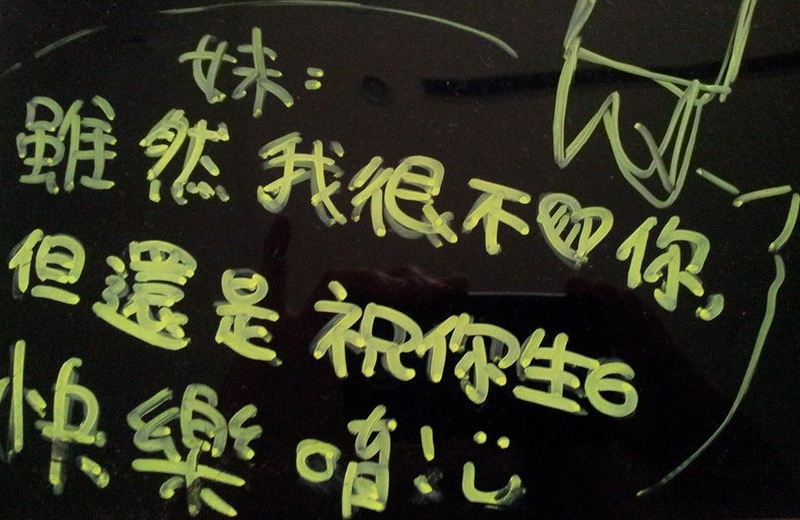 妹:
雖然我很不♡你,
但還是祝你生日
快樂唷!ت